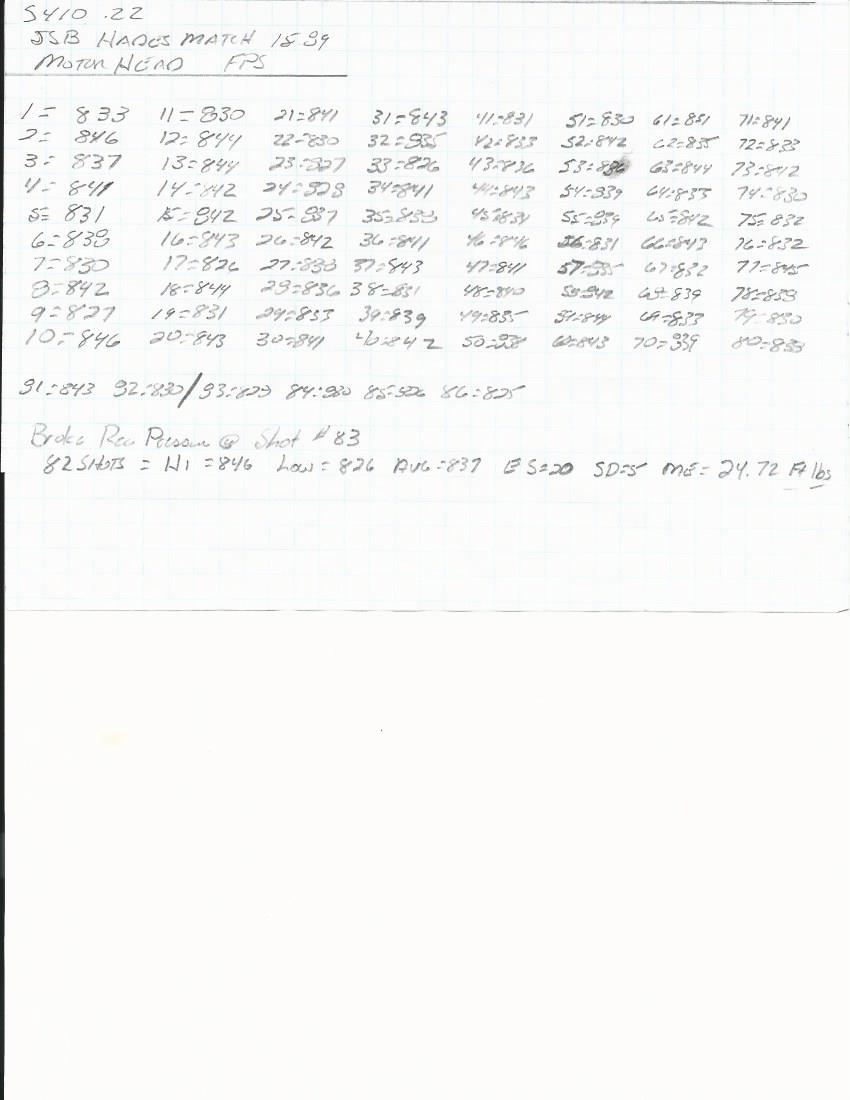 S410 .22
JSB HADES MATCH 15.89
MOTOR HEAD FPS
1= 833 11=830 21=841 31=843 41=831 51=830 61=831 71=841
2= 846 12=844 22=830 32=835 42=833 52=842 62=835 72=833
3= 837 13=844 23=827 33=826 43=836 53=836 63=844 73=842
4= 841 14=842 24=828 34=841 44=843 54=839 64=833 74=830
5= 831 15=842 25=837 35=833 45=831 55=839 65=842 75=832
6=839 16=843 26=842 36=841 46=846 56=831 66=843 76=832
7=830 17=826 27=838 37=843 47=841 57=835 67=832 77=845
8=842 18=844 28=836 38=831 48=840 58=842 68=839 78=839
9=827 19=831 29=833 39=839 49=835 59=844 69=833 79=830
10=846 20=843 30=841 40=842 50=838 60=843 70=839 80=833
81=843 82=830/83=829 84=830 85=826 86=825
Broke Reg Pressure @ Shot #83
82 SHOTS = HI=846 Low=826 AVG=837 ES=20 SD=5 ME=24.72 Ft lbs